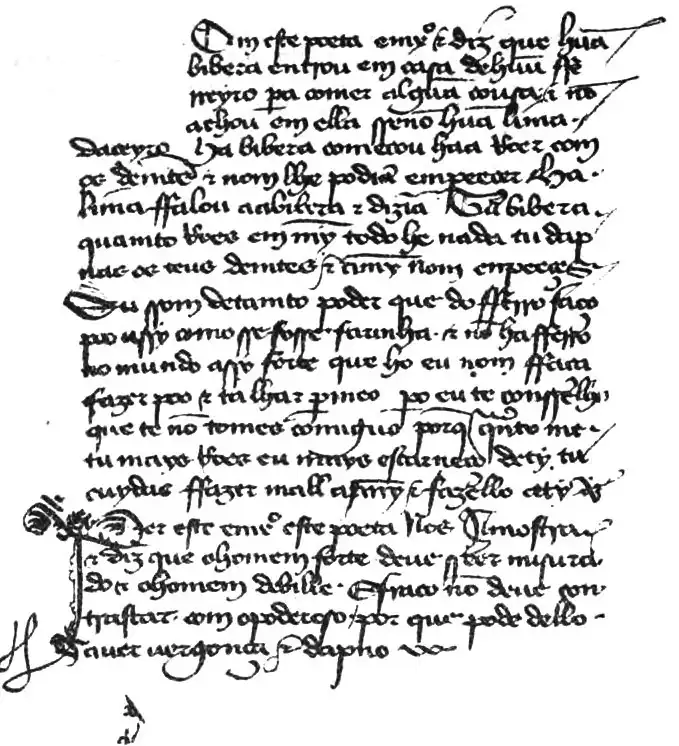 Em este poeta emxº & diz que hũa
bibera entrou em casa dehuũ ffe
rreyro pa comer algũa cousa & nõ
achou em ella ssenõ hũa lima
daceyro ha bibera começou haa rroer com
os dentes & nom lhe podia empeecer ha
lima ffalou aabibera & dizia bibera
quamto rroes em my todo he nada tu dap
nas os teus dentes & a my nom enpeeces
Eu ssom detamto poder que do fferro faço
poo assy como sse fosse farinha & nõ ha fferro
no mundo assy forte que ho eu nom ffaça
fazer poo & talhar p meo po eu te consselho
que te nõ tomes comiguo porq quãto me
tu mays rroes eu mays escarneço dety tu
cuydas ffazer mall a my & fazello a ty
Per este emxº este poeta nos amostra
& diz que ohomem forte deve sseer misura
do & ohomem debille & fraco nõ deve con
trastar com opoderoso por que pode dello
aver vergonça & dapno